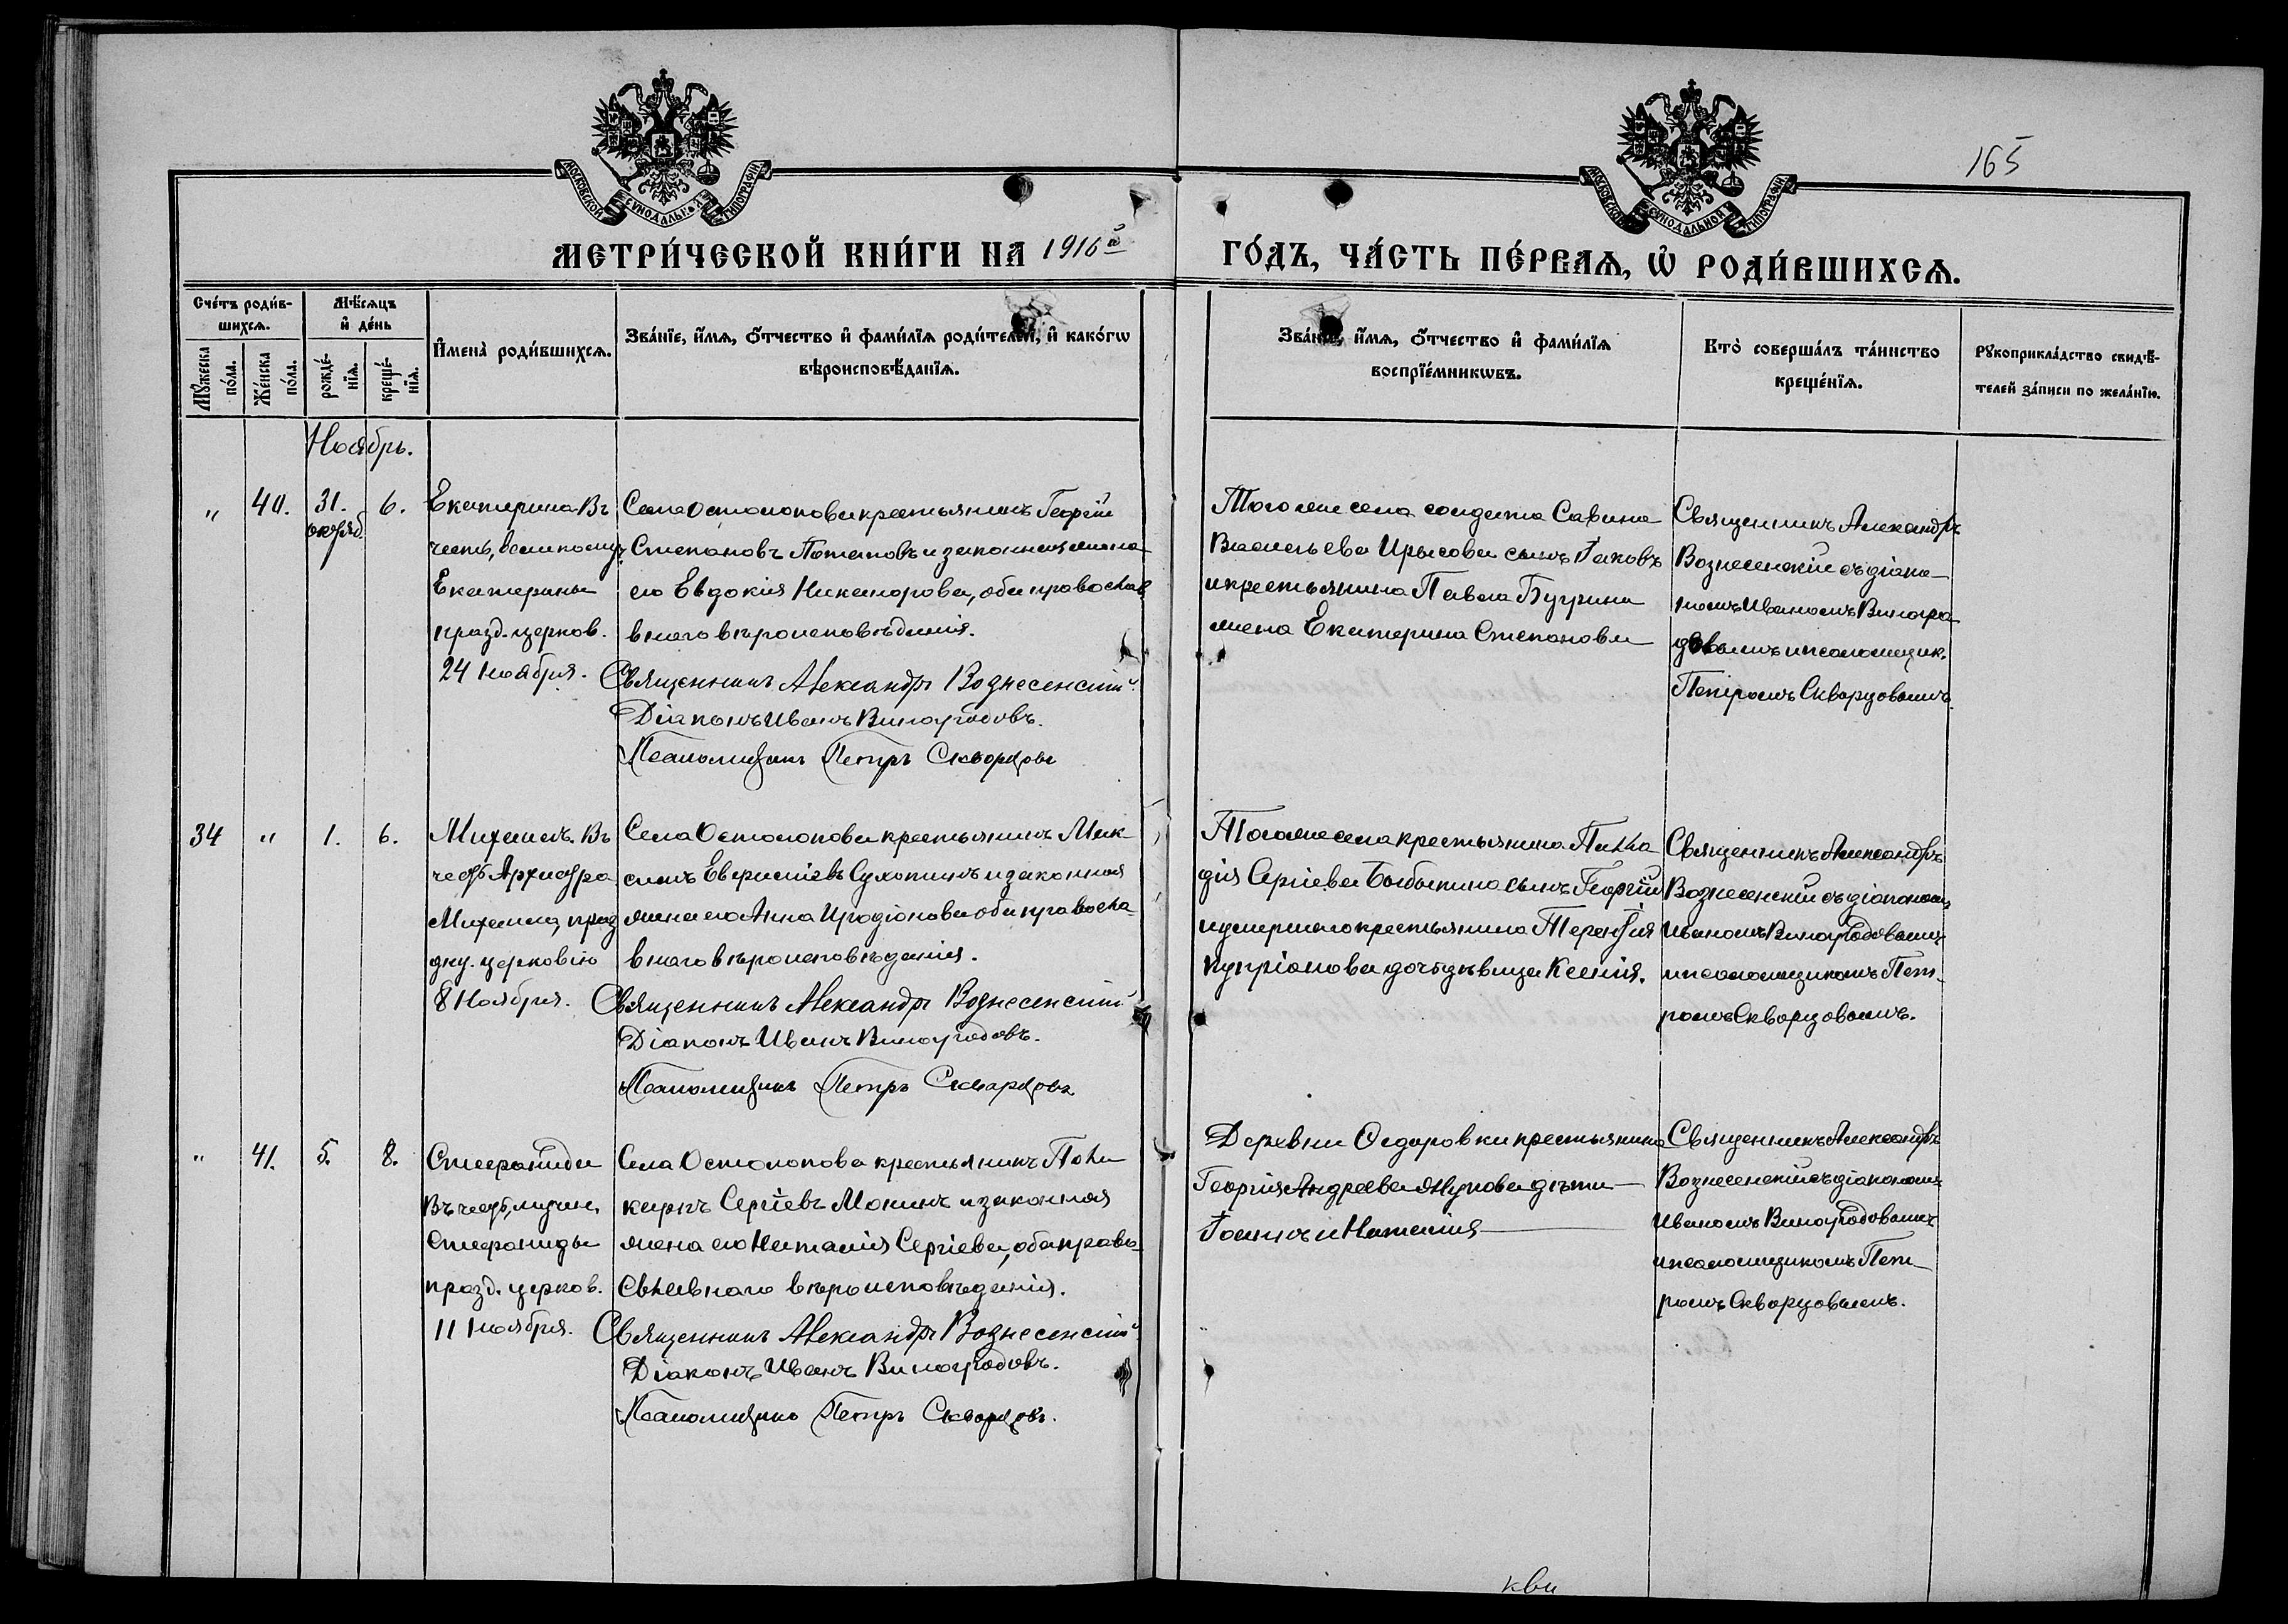 165
МОСКОВСКОЙ СУНОДАЛЬНОЙ ТИПОГРАФІИ
МОСКОВСКОЙ СУНОДАЛЬНОЙ ТИПОГРАФІИ
МЕТРИ́ЧЕСКОЙ КНИ́ГИ НА 1916й
ГО́ДЪ, ЧА́СТЬ ПЕ́РВАѦ, Ѡ҆ РОДИ́ВШИХСѦ.
Сче́тъ роди́в-
шихсѧ.
Мꙋ́жеска по́ла.
Же́нска по́ла.
Мѣ́сѧцъ
и҆ де́нь
рожде́-нїѧ.
креще́-нїѧ.
И҆мена̀ роди́вшихсѧ.
Зва́нїе, и҆́мѧ, ѻ҆́тчество и҆ фами́лїѧ роди́телей, и҆ како́гѡ
вѣроисповѣ́данїѧ.
Зва́нїе, и҆́мѧ, ѻ҆́тчество и҆ фами́лїѧ
воспрїе́мникѡвъ.
Кто̀ соверша́лъ та́инство
креще́нїѧ.
Рꙋкоприкла́дство свидѣ́-
телей за́писи по жела́нїю.
Ноябрь.
" 40. 31. октяб. 6.
Екатерина Въ
честь, великомуч.
Екатерины
празд. церков.
24 ноября.
Села Остолопова крестьянинъ Георгій
Степановъ Потаповъ и законная жена
его Евдокія Никанорова, оба православ
наго вѣроисповѣданія.
Священникъ Александръ Вознесенскій
Діаконъ Иванъ Виноградовъ.
Псаломщикъ Петръ Скворцовъ
Того же села солдата Савина
Васильева Ирисова сынъ Іаковъ
и крестьянина Павла Бугрина
жена Екатерина Степанова
Священникъ Александръ
Вознесенскій съ діако-
номъ Иваномъ Виногра
довымъ и псаломщик.
Петромъ Скворцовымъ.
34 " 1. 6.
Михаилъ. Въ
честь Архистра
Михаила, празд
дну. церковію
8 Ноября.
Села Остолопова крестьянинъ Мак-
симъ Евфиміевъ Сухотинъ и законная
жена его Анна Иродіонова оба правосла-
внаго вѣроисповѣданія.
Священникъ Александръ Вознесенскій
Діаконъ Иванъ Виноградовъ.
Псаломщикъ Петръ Скворцовъ
Того же села крестьянина Палла
дія Сергіева сынъ Георгій
и умершаго крестьянина Терентія
Купріанова дочь дѣвица Ксенія.
Священникъ Александръ
Вознесенскій съ діакономъ
Иваномъ Виноградовымъ
и псаломщикомъ Пет-
ромъ Скворцовымъ.
" 41. 5. 8.
Стефанида
Въ честь, мучен.
Стефаниды
празд. церков.
11 ноября.
Села Остолопова крестьянинъ Поли
карпъ Сергіевъ Мокинъ и законная
жена его Наталія Сергіева, оба право-
славнаго вѣроисповѣданія.
Священникъ Александръ Вознесенскій
Діаконъ Иванъ Виноградовъ.
Псаломщикъ Петръ Скворцовъ.
Деревни Ѳедоровки крестьянина
Георгія Андреева Жукова дѣти
Іоаннъ и Наталія
Священникъ Александръ
Вознесенскій съ діакономъ
Иваномъ Виноградовымъ
и псаломщикомъ Пет-
ромъ Скворцовымъ.